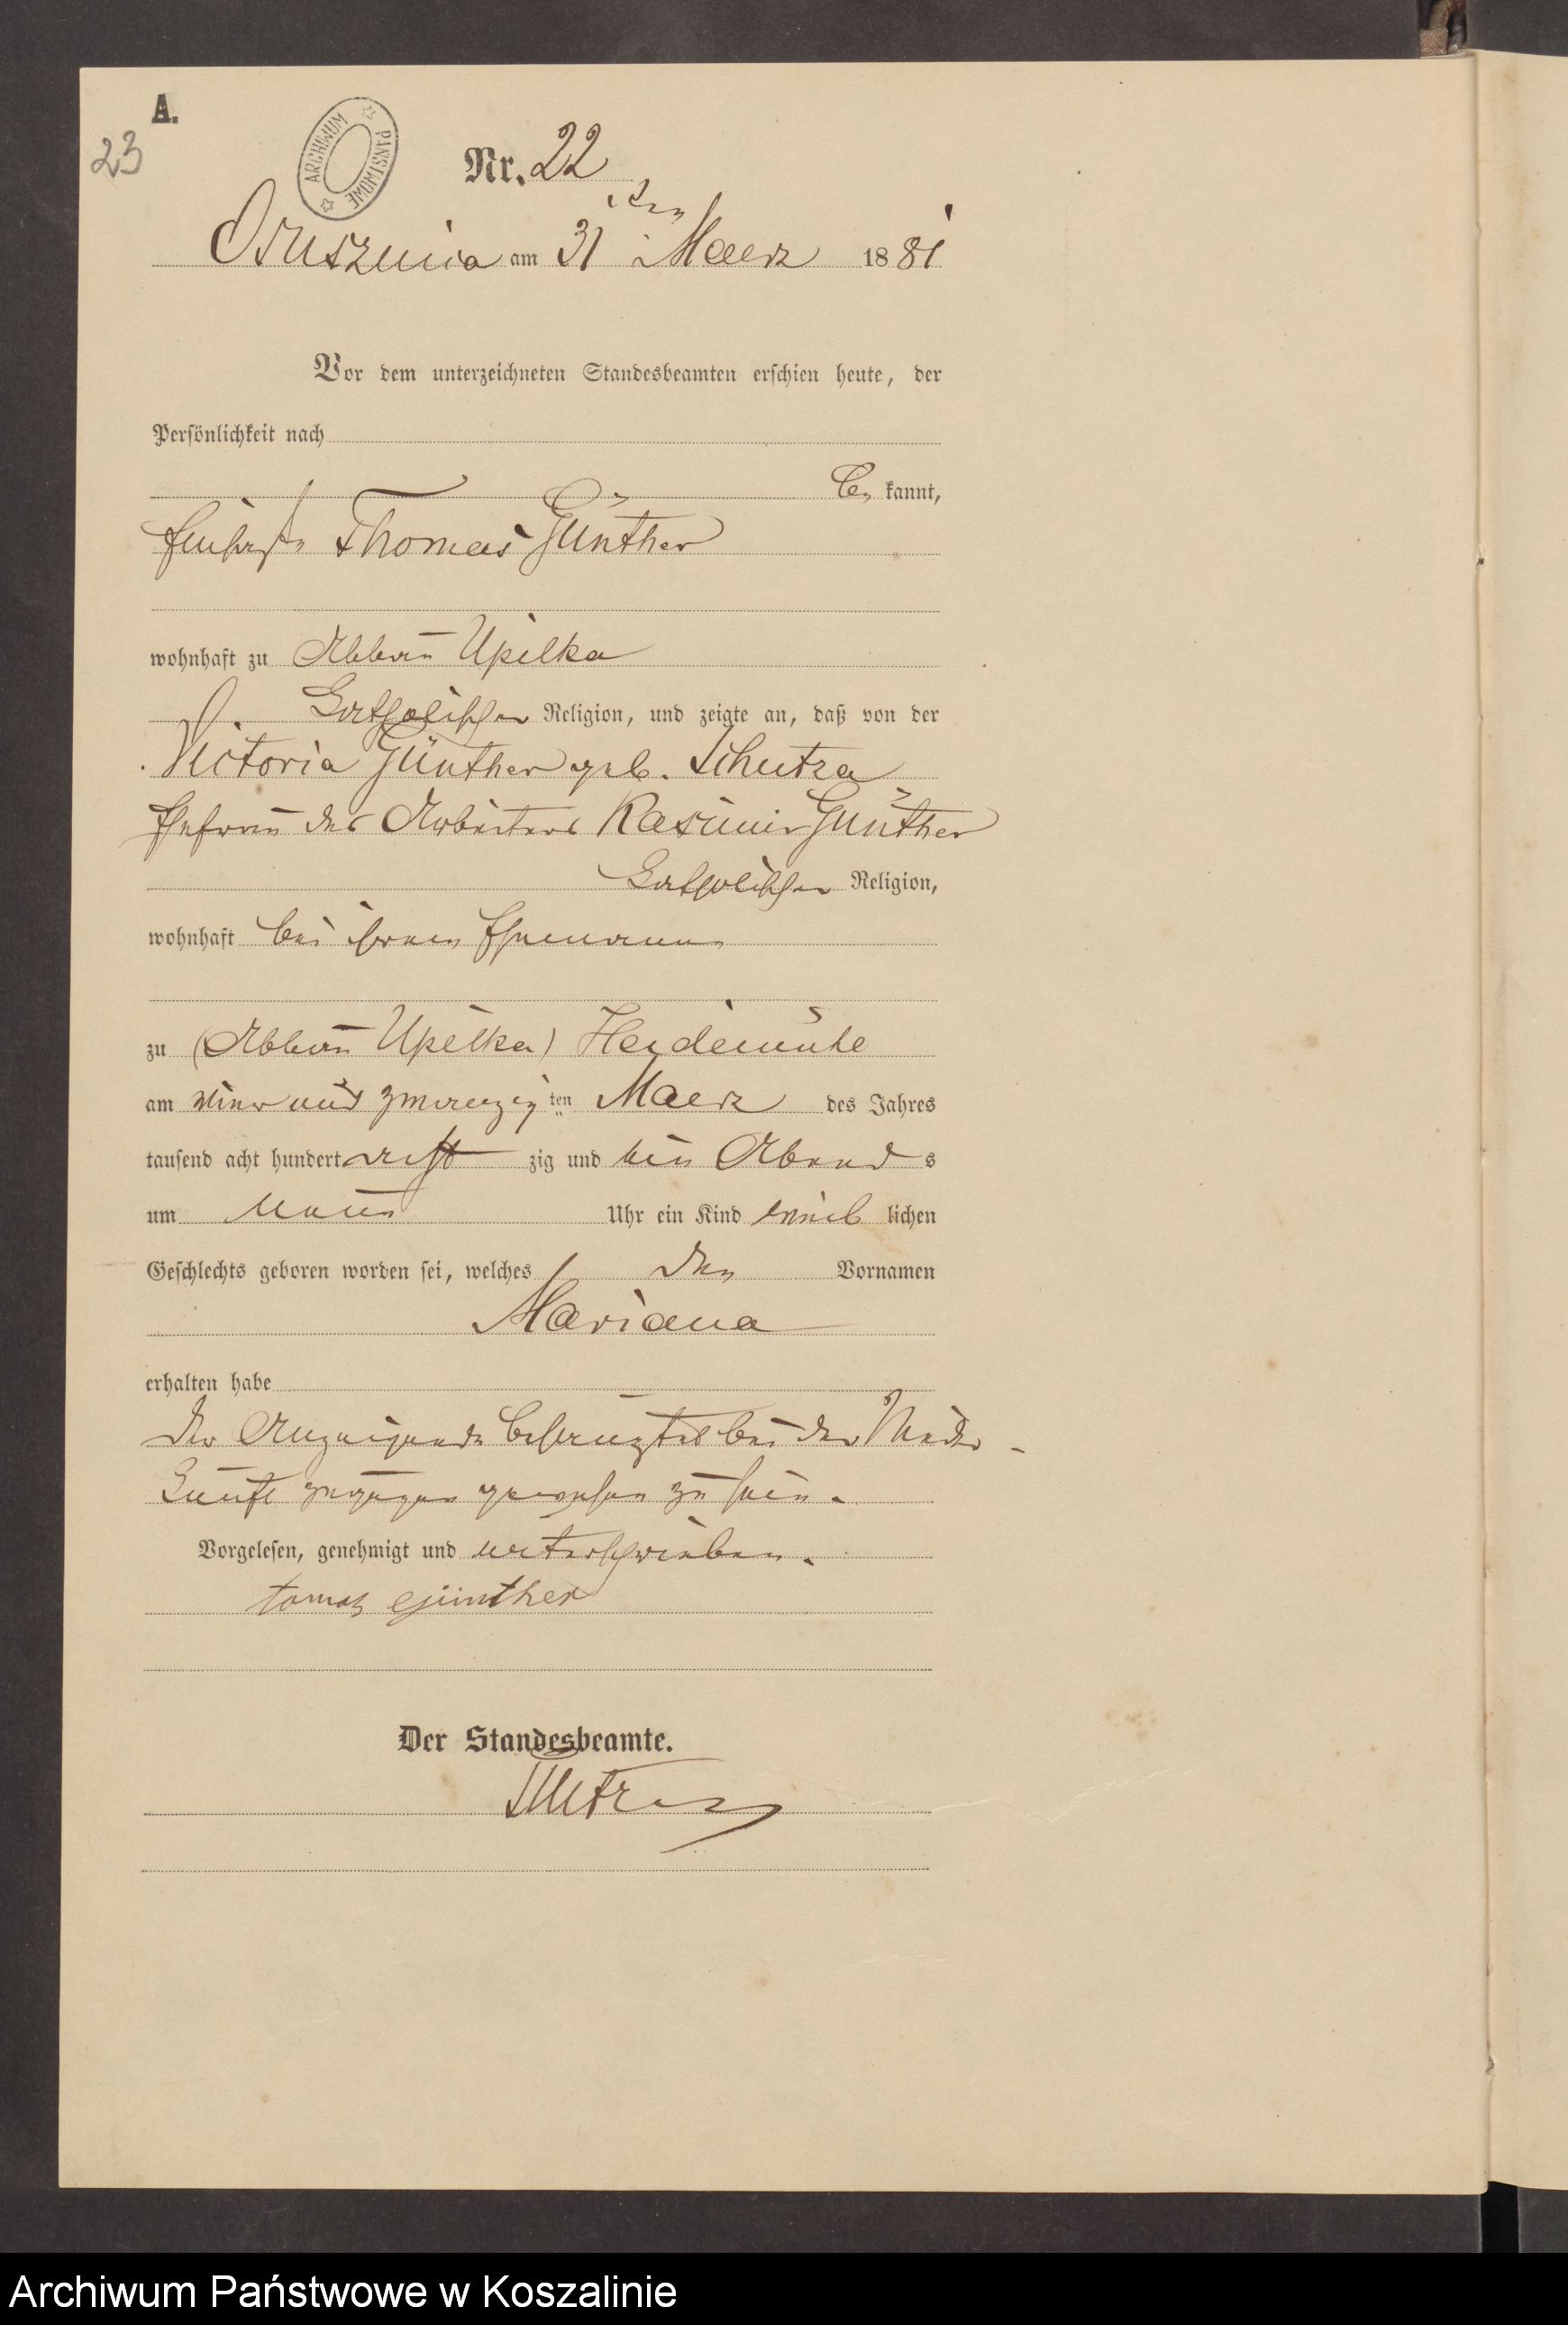 A.
23
ARCHIWUM PAŃSTWOWE
Nr. 22
Osusznica am 31 ten Maerz 1881
Vor dem unterzeichneten Standesbeamten erschien heute, der
Persönlichkeit nach
be kannt,
Thomas Günther
wohnhaft zu Abbau Upilka
katholischer Religion, und zeigte an, daß von der
Victoria Günther geb. Schutza
Ehefrau des Arbeiters Kasimir Günther
katholischer Religion,
wohnhaft bei ihrem Ehemann
zu (Abbau Upilka) Heidemühle
am und zwanzig ten Maerz des Jahres
tausend acht hundert acht zig und ein Abend s
um neun Uhr ein Kind weib lichen
Geschlechts geboren worden sei, welches den Vornamen
Mariana
erhalten habe
Der Anzeigende bei der Nieder-
kunft zugegen gewesen zu sein.
Vorgelesen, genehmigt und unterschrieben.
tomas günther
Der Standesbeamte.
Archiwum Państwowe w Koszalinie